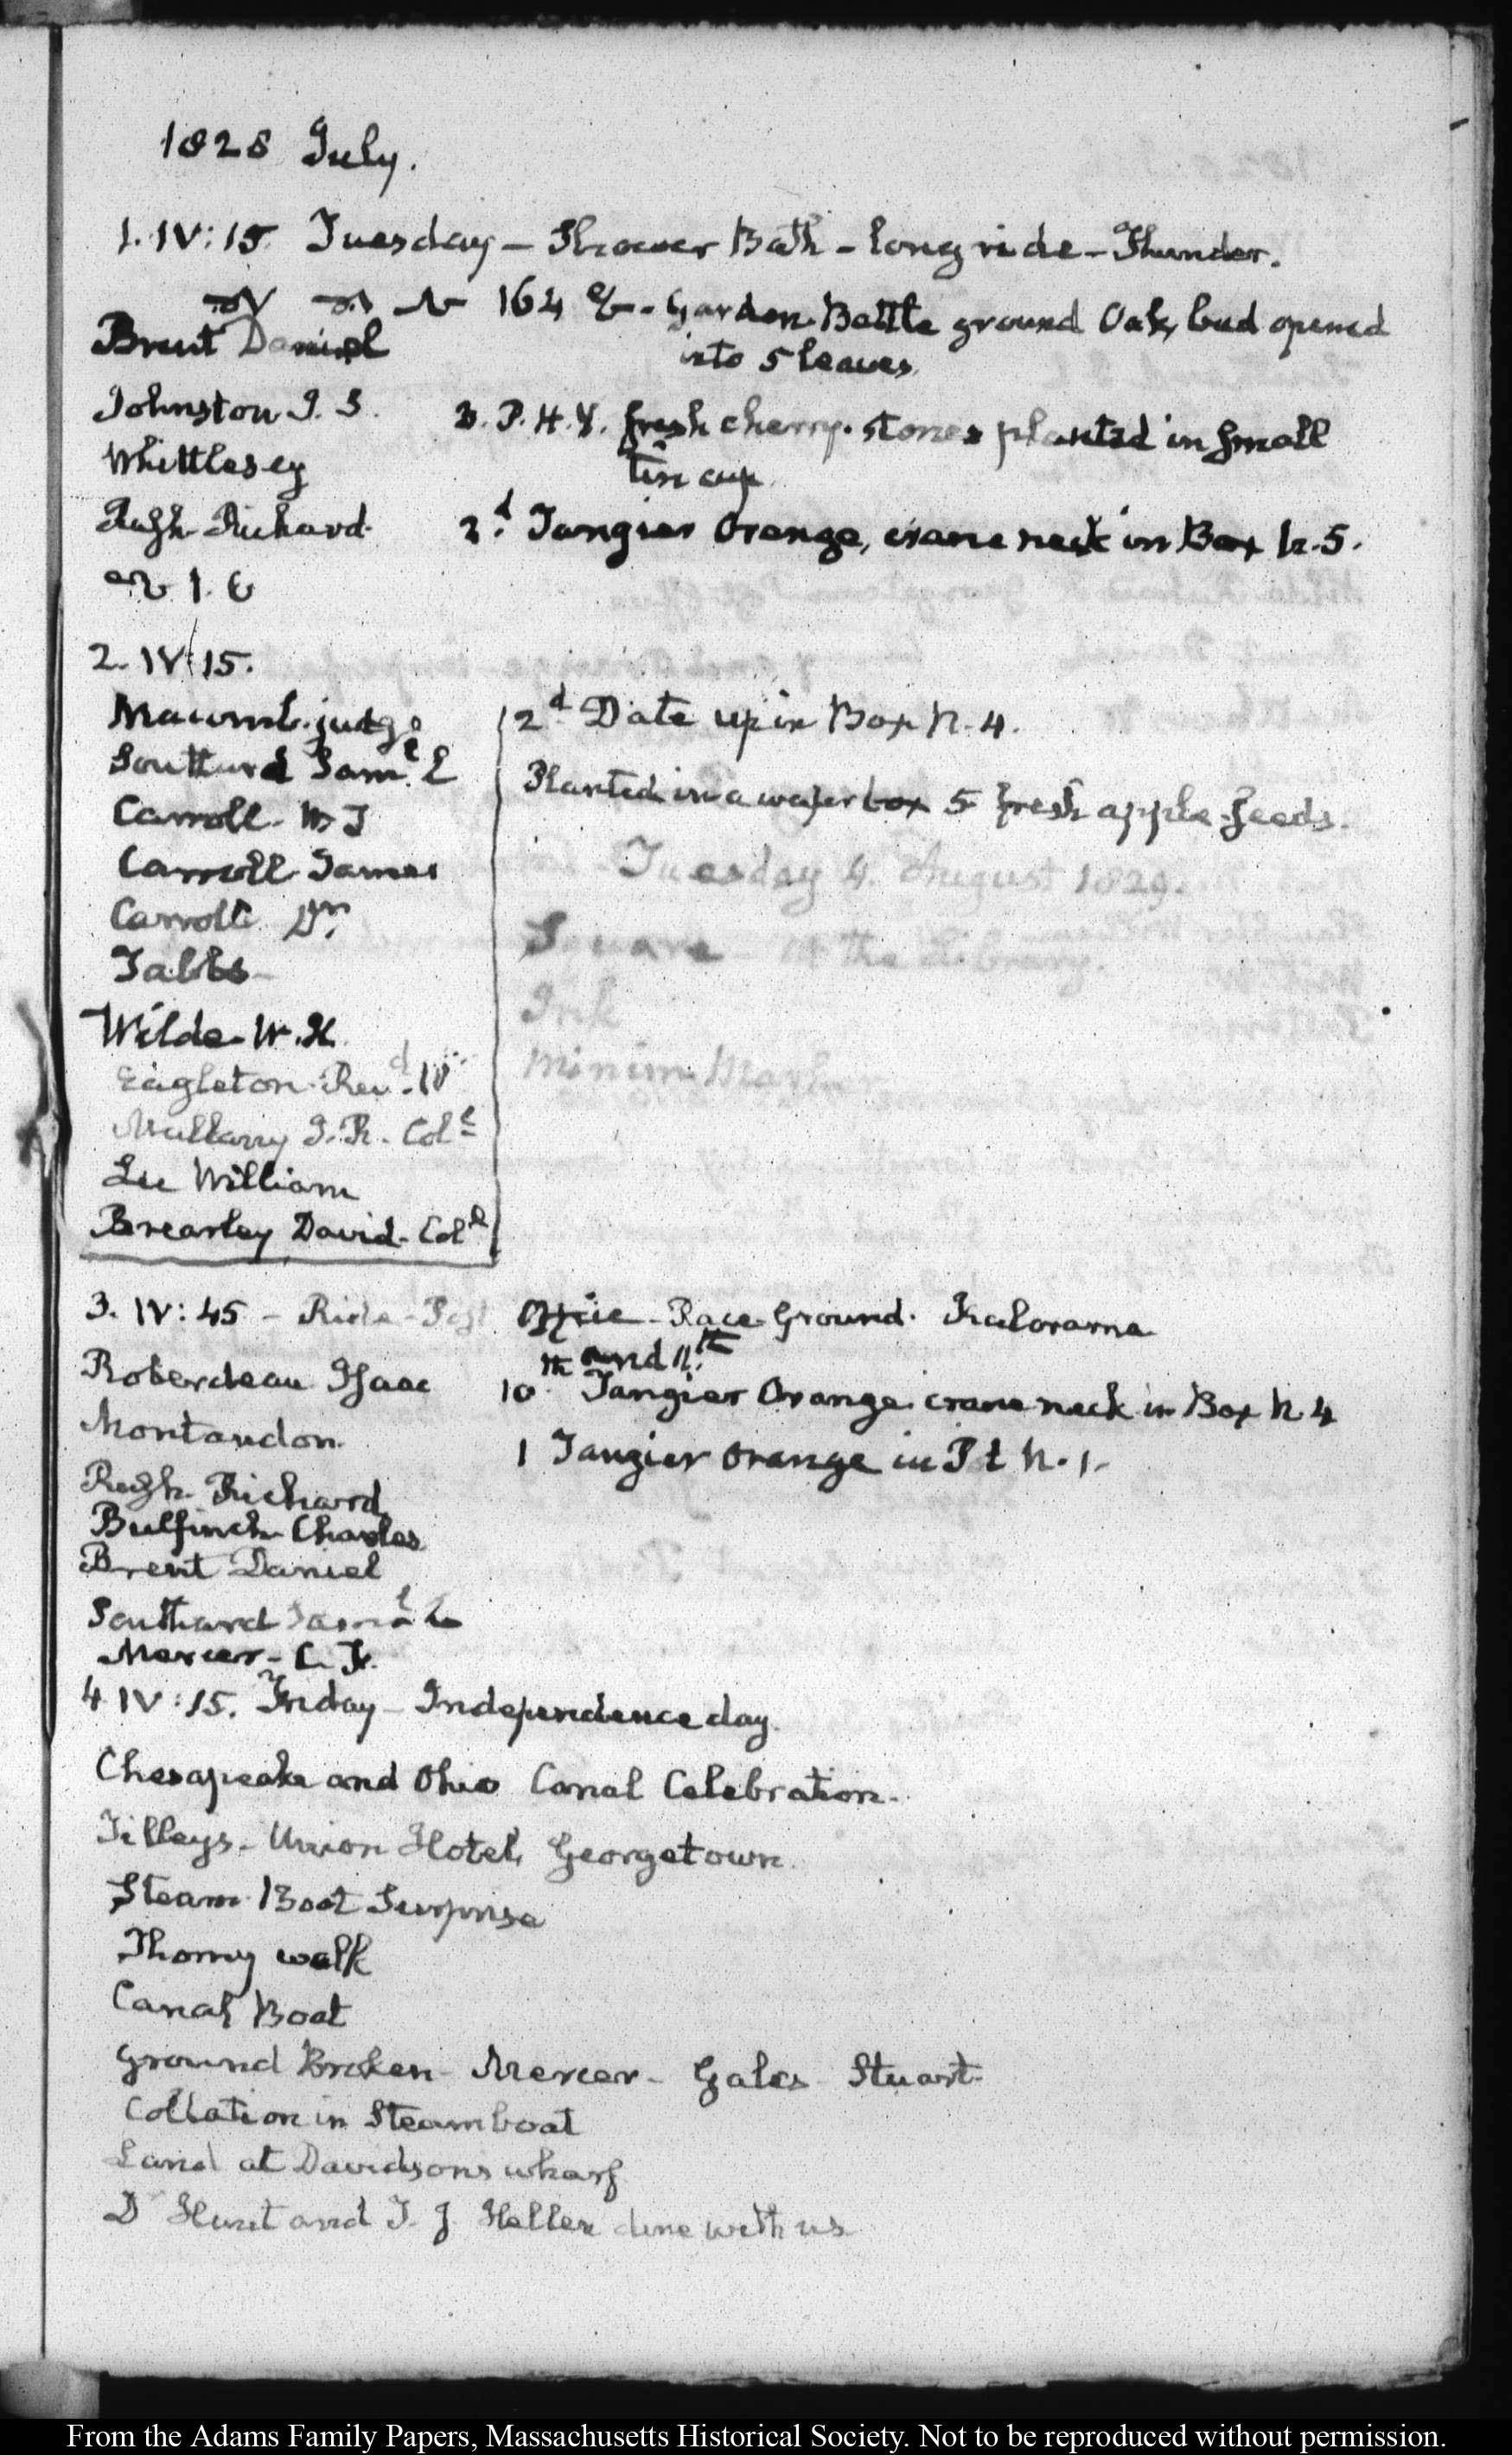 1828 July.
1. IV: 15. Tuesday – Shower Bath – long ride – Thunder.
164 Garden. Battle ground Oak, bud opened
into 5 leaves
Brent Daniel
Johnston J. S.
3. P. H. Y. fresh cherry-stones planted in small
tin cup
Whittlesey
Rush Richard.
2.d Tangier Orange, crane neck in Box N. 5.
2. IV: 15.
Macomb. judge
2d Date up in Box N. 4.
Southard Saml. L
Planted in a wafer box 5 fresh apple-seeds.
Carroll. W T
Carroll James
Tuesday 4. August 1829.
Carroll Dr.
Square – in the Library.
Tabbs
Ink
Wilde. W. H.
Minim
Eagleton. Revd. W
Mullany J. R. Coll
Lee William
Brearley David. Coll
3. IV: 45 – Ride – Post Office – Race Ground. Kalorama
Roberdeau Isaac
10th and 11th Tangier Orange. crane neck in Box N. 4
Montandon
1 Tangier Orange in Pt N. 1.
Rush Richard
Bulfinch Charles
Brent Daniel
Southard Saml L
Mercer – C. F.
4 IV: 15. Friday – Independence day.
Chesapeake and Ohio Canal Celebration.
Tilleys – Union Hotel, Georgetown.
Steam-Boat Surprise
Thorny walk
Canal Boat
Ground Broken – Mercer – Gales Stuart
Collation in Steamboat
Land at Davidsons wharf
D Hunt and T. J. Hellen dine with us
From the Adams Family Papers, Massachusetts Historical Society. Not to be reproduced without permission.